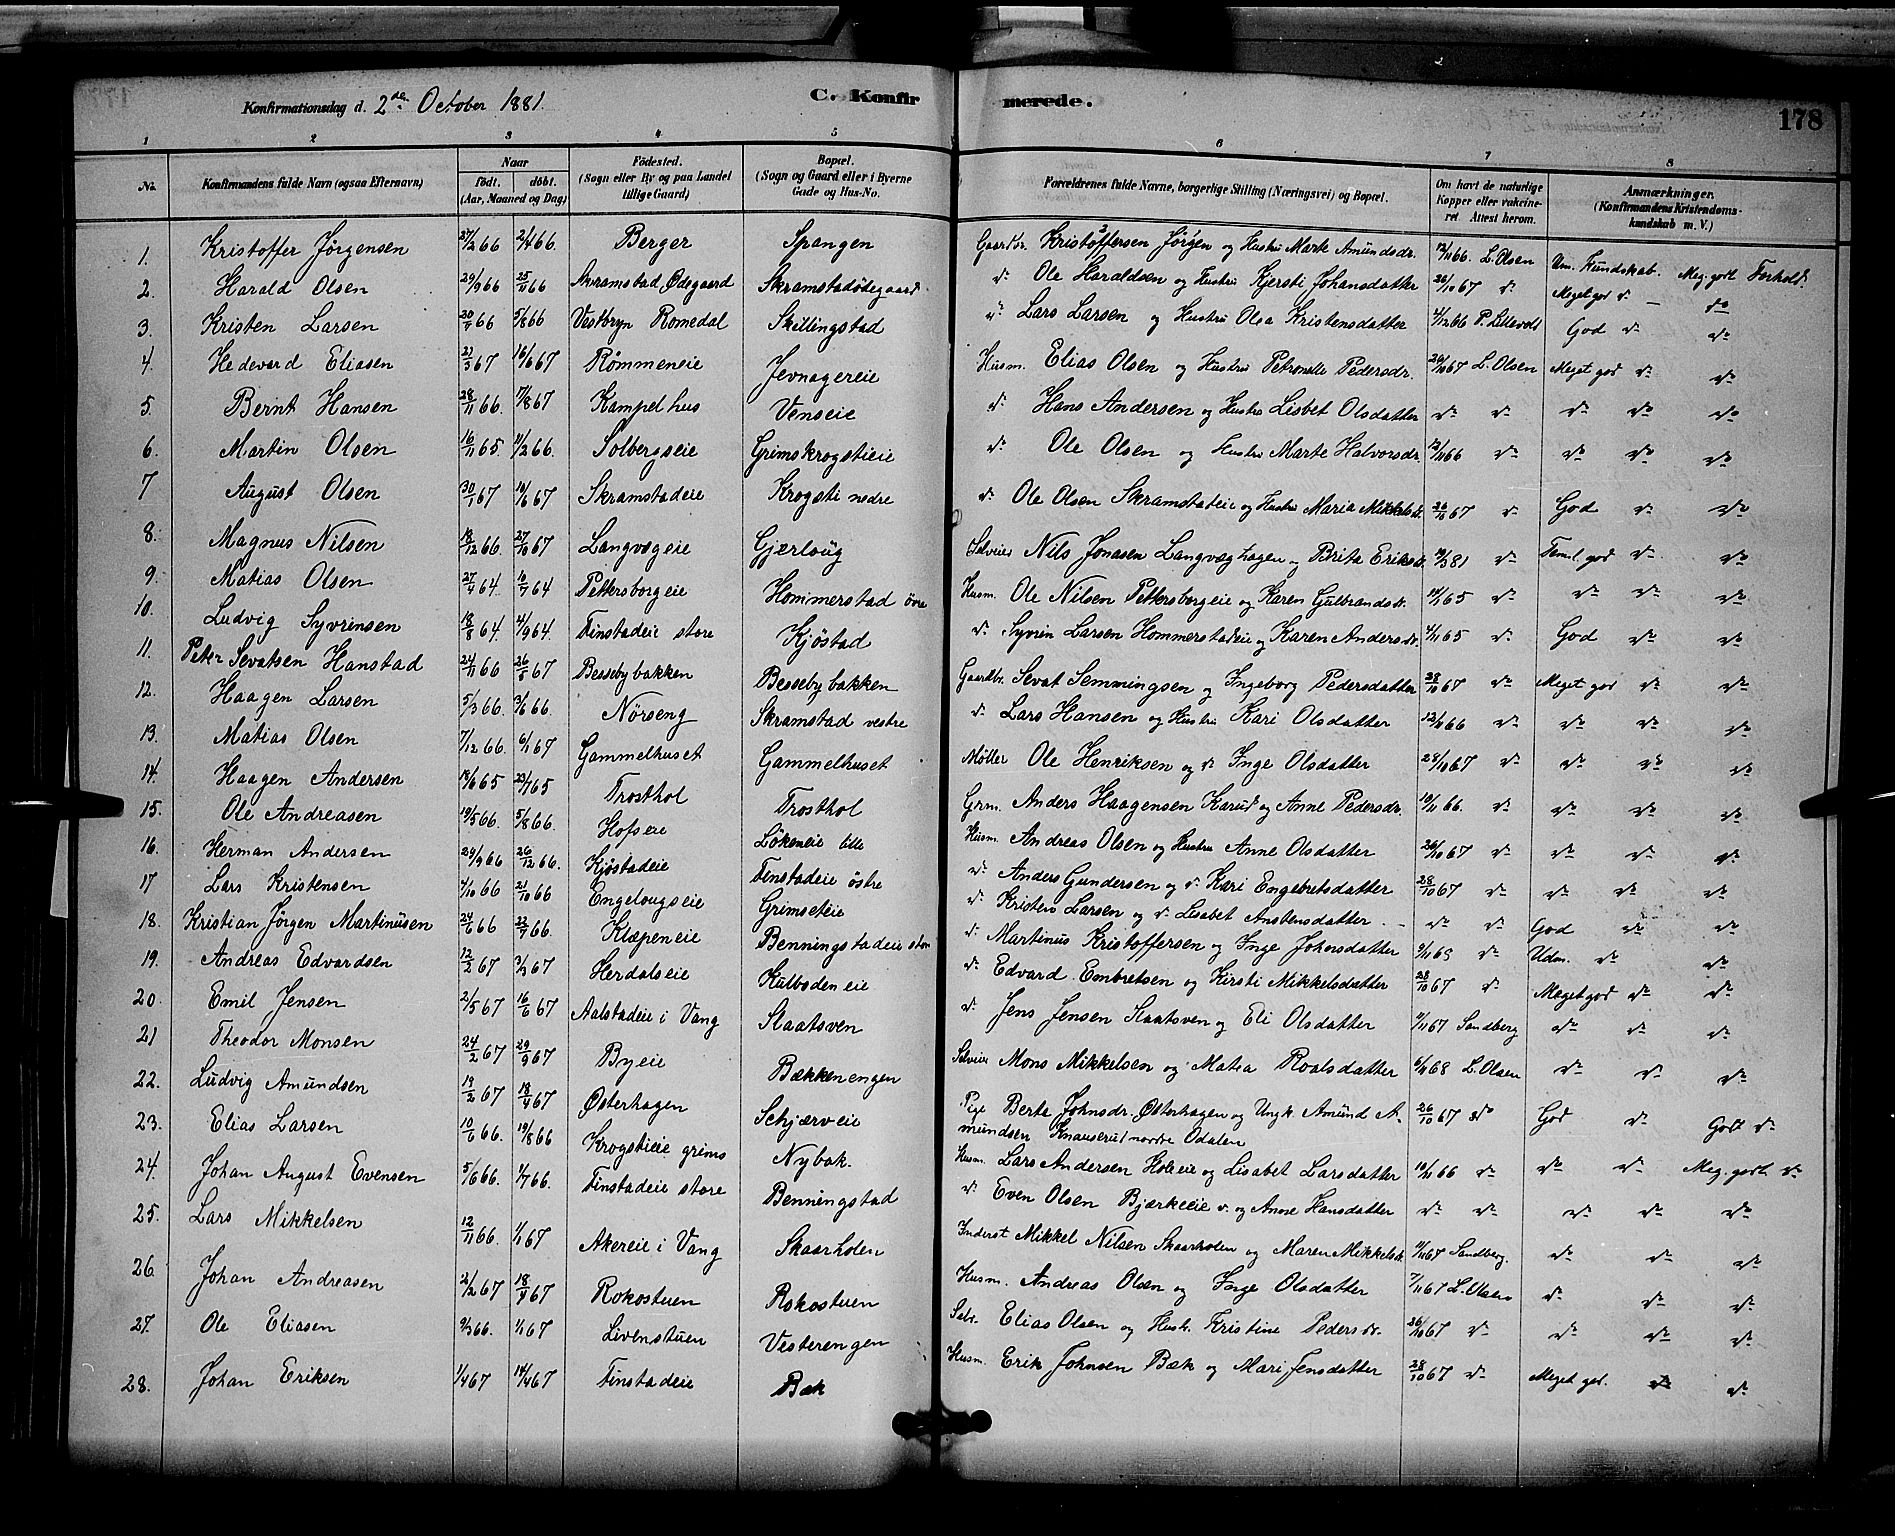 Konfirmationsdag d. 2den October 1881.
C. Konfirmerede.
178
1 2 3 4 5 6 7 8
No. Konfirmandens fulde Navn (ogsaa Efternavn) Naar født. døbt. (Aar, Maaned og Dag) Fødested. (Sogn eller By og paa Landet tillige Gaard) Bopæl. (Sogn og Gaard eller i Byerne Gade og Hus-No.) Forældrenes fulde Navne, borgerlige Stilling (Næringsvei) og Bopæl. Om havt de naturlige Kopper eller vaccineret Attest herom. Anmærkninger. (Konfirmandens Kristendomskundskab m. V.)
1. Kristoffer Jørgensen 27/2 66 2/4 66. Berger Spangen Gaardbr. Kristoffersen Jørgen og Hustru Marte Amundsdr. 12/11 66. L. Olsen Um. Kundskab. Meg. godt Forhold
2. Harald Olsen 29/9 66 25/11 66 Skramstad Ødegaard Skramstadødegaard do Ole Haraldsen og Hustru Kjersti Johansdatter 28/10 67 do Meget god do do
3. Kristen Larsen 20/4 66 5/8 66 Vestbryn Romedal Skillingstad do Lars Larsen og Hustru Olea Kristensdatter 4/12 66 P. Lillevold God do do
4. Hedevard Eliasen 21/3 67 16/6 67 Rømmeneie Jevnagereie Husm. Elias Olsen og Hustru Petronelle Pedersdr. 26/10 67 L. Olsen Meget god do do
5. Bernt Hansen 28/11 66. 17/8 67 Kampelhus Venseie do Hans Andersen og Hustru Lisbet Olsdatter do do do do do
6. Martin Olsen 16/11 65. 11/2 66. Solbergseie Grimskrogstieie do Ole Olsen og Hustru Marte Halvorsdr. 12/11 66 do do do do
7 August Olsen 30/1 67 10/6 67 Skramstadeie Krogsti nedre do Ole Olsen Skramstadeie og Hustru Maria Mikkelsdr. 26/10 67 do God do do
8. Magnus Nilsen 18/12 66. 27/10 67 Langvægeie Gjærloug Selveier Nils Jonasen Langvæghagen og Brita Eriksdr. 10/3 81 do Teml. god do do
9. Matias Olsen 27/4 64. 10/7 64 Pettersborgeie Hommerstad øvre Husm. Ole Nilsen Pettersborgeie og Karen Gulbrandsdr. 14/11 65 do do do do
10. Ludvig Syvrinsen 18/8 64. 4/9 64. Finstadeie store Kjøstad do Syvrin Larsen Hommerstadeie og Karen Andersdr. 4/11 65 do God do do
11. Peter Sevatsen Hanstad 24/11 66 26/5 67 Bessebybakken Bessebybakken Gaardbr. Sevat Semmingsen og Ingeborg Pedersdatter 28/10 67 do Meget god do do
12. Haagen Larsen 5/3 66. 3/6 66 Nørseng Skramstad vestre do Lars Hansen og Hustru Kari Olsdatter 12/11 66 do do do do
13. Matias Olsen 7/12 66. 6/1 67 Gammelhuset Gammelhuset Møller Ole Henriksen og do Inge Olsdatter 28/10 67 do do do do
14. Haagen Andersen 18/6 65 23/7 65 Trosthol Trosthol Grm. Anders Haagensen Karud og Anne Pedersdr. 10/11 66. do do do do
15. Ole Andreasen 19/5 66. 5/8 66. Hofseie Løkeneie lille Husm. Andreas Olsen og Hustru Anne Olsdatter 26/10 67 do do do do
16. Herman Andersen 29/9 66 26/12 66. Kjøstadeie Finstadeie østre do Anders Gundersen og do Kari Engebretsdatter 28/10 67 do do do do
17 Lars Kristensen 7/10 66 21/10 66 Engelougseie Grimseteie do Kristen Larsen og do Lisabet Anstensdatter do do God do do
18. Kristian Jørgen Martinusen 24/6 66 22/7 66. Klæpeneie Benningstadeie store do Martinus Kristoffersen og Inge Johansdatter 9/11 69 do Udm. do do
19. Andreas Edvardsen 12/2 67 3/3 67 Herdalseie Kulbodeneie do Edvard Embretsen og Kirsti Mikkelsdatter 28/10 67 do Meget god do do
20. Emil Jensen 2/5 67 16/6 67 Aalstadeie i Vang Slaatsven do Jens Jensen Slaatsven og Eli Olsdatter 7/11 67 Sandberg do do do
21 Theodor Monsen 24/2 67 29/9 67 Byeie Bækkenengen Selveier Mons Mikkelsen og Matea Roalsdatter 6/11 68 L. Olsen do do do
22. Ludvig Amundsen 19/2 67 18/4 67 Østerhagen Schjærveie Pige Berte Johnsdr. Østerhagen og Ungk. Amund Amundsen Knauserud nordre Odalen 26/10 67 do God do Godt do
23. Elias Larsen 10/6 66. 19/8 66 Krogstieie grims Nybak. Husm. Lars Andersen Holeie og Lisabet Larsdatter 10/11 66 do do do Meg. godt do
24. Johan August Evensen 5/6 66. 1/7 66. Finstadeie store Benningstad do Even Olsen Bjærkeeie do og Anne Hansdatter do do do do do
25. Lars Mikkelsen 12/11 66. 1/1 67 Akereie i Vang Skaarholen Inderst Mikkel Nilsen Skaarholen og Maren Mikkelsdr. 11/11 67 Sandberg. do do do
26. Johan Andreasen 2/2 67 18/4 67 Rokostuen Rokostuen Husm. Andreas Olsen og Inge Olsdatter 7/11 67 L. Olsen do do do
27. Ole Eliasen 9/3 66. 1/1 67 Livenstuen Vesterengen Selv. Elias Olsen og Hustr. Kristine Pedersdr. 26/10 67 do do do do
28. Johan Eriksen 1/4 67 14/4 67 Finstadeie Bæk Husm. Erik Johnsen Bæk og Mari Jensdatter 28/10 67 do Meget god. do do